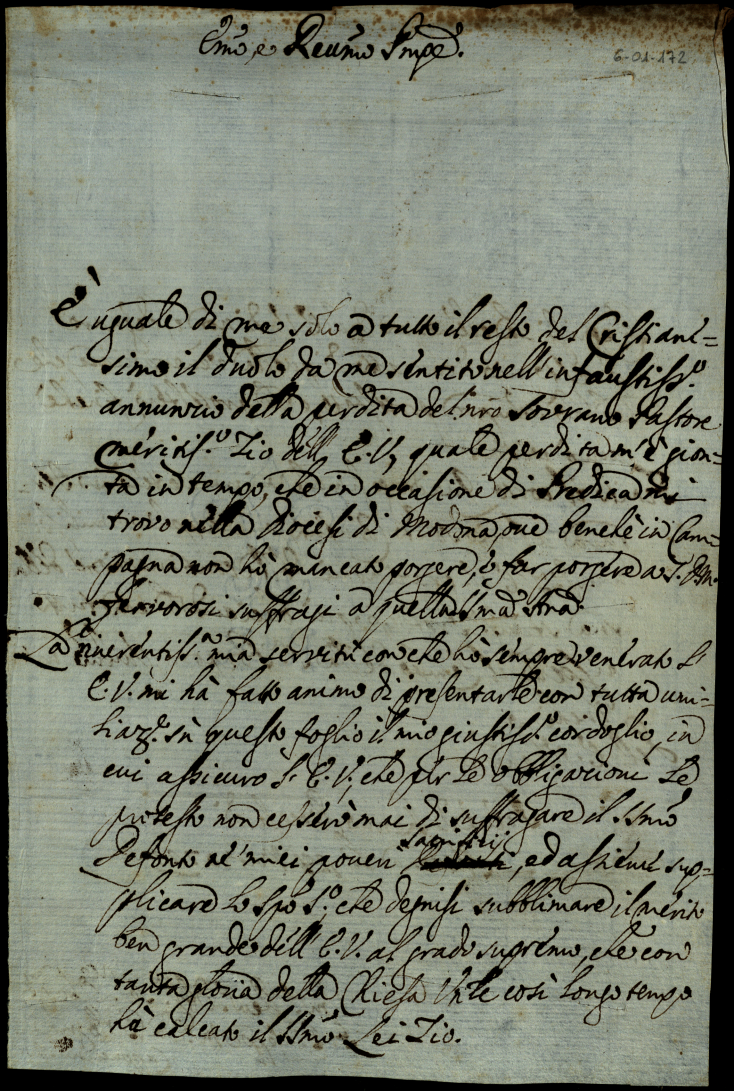 Emo e Reumo Smpe.
6-01-172
È uguale di me solo a tutto il resto del Cristiane-
simo il duolo da me sentito nell'infaustiss.o
annunzio della perdita del nro Sovrano Pastore
meritis.o Zio dell'E.V., quale perdita m'è gion-
ta in tempo, che in occasione di Predica mi
trovo nella Diocesi di Modona, oue benchè in Cam-
pagna non hò mancato porgere, e far porgere a S.D.M.
feruorosi suffragi a quella SSma
La riuerentiss.a mia seruitù con che hò sempre venerato L'
E.V. mi hà fatto animo di presentarle con tutta umi-
liaz.e sù questo foglio il mio giustiss.o cordoglio, in
cui assicuro L'E.V., che per le obbligazioni Le
protesto non cesserò mai di suffragare il SSmo
Defonto ne' miei poueri Sacrificij, ed assieme sup-
plicare Lo Spo S.o, che degnisi subblimare il merito
ben grande dell'E.V. al grado supremo, che con
tanta gloria della Chiesa Vnle così longo tempo
hà calcato il SSmo Lei Zio.